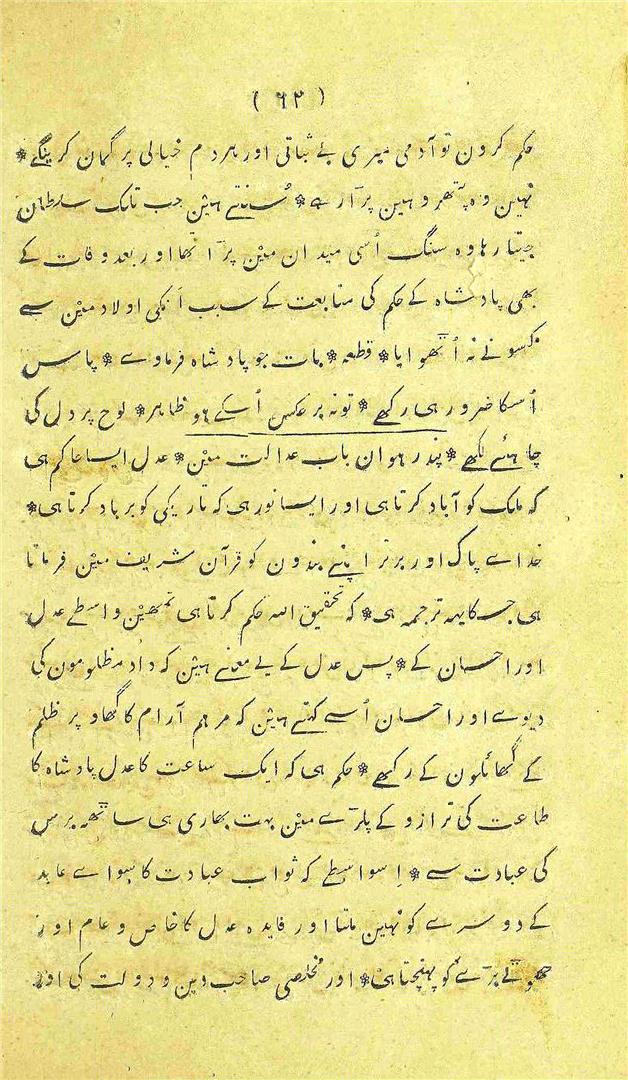 ( ٦٢ )
حکم کرون تو آدمی میری بے ثباتی اور ہر دم خیالی پر گمان کرینگے *
نہین وہ پتھر وہین پر آرہے * سُنتے ہین جب تلک سلطان
جیتا رہا وہ سنگ اُسی میدان مین پڑا تھا اور بعد وفات کے
بھی پادشاہ کے حکم کی متابعت کے سبب اُنکی اولاد مین سے
کسو نے نہ اُٹھوایا * قطعہ * بات جو پادشاہ فرماوے * پاس
اُسکا ضرور ہی رکھے * تو نہ بر عکس اُسکے ہو ظاہر * لوح پر دل کی
چاہئے لکھے * پندرہوان باب عدالت مین * عدل ایسا حاکم ہی
کہ ملک کو آباد کرتا ہی اور ایسا نور ہی کہ تاریکی کو برباد کرتا ہی *
خداے پاک اور برتر اپنے بندون کو قرآن شریف مین فرماتا
ہی جسکا یہہ ترجمہ ہی * کہ تحقیق اللہ حکم کرتا ہی تمھین واسطے عدل
اور احسان کے * پس عدل کے یے معنے ہین کہ داد مظلومون کی
دیوے اور احسان اُسے کہتے ہین کہ مرہم آرام کا گھاو پر ظلم
کے گھائلون کے رکھے * حکم ہی کہ ایک ساعت کا عدل پادشاہ کا
طاعت کی ترازو کے پلڑے مین بہت بھاری ہی ساٹھہ برس
کی عبادت سے * اِسواسطے کہ ثواب عبادت کا سواے عابد
کے دوسرے کو نہین ملتا اور فایدہ عدل کا خاص و عام اور
چھوٹے بڑے کو پہنچتا ہی * اور مخلصی صاحب دین و دولت کی اور